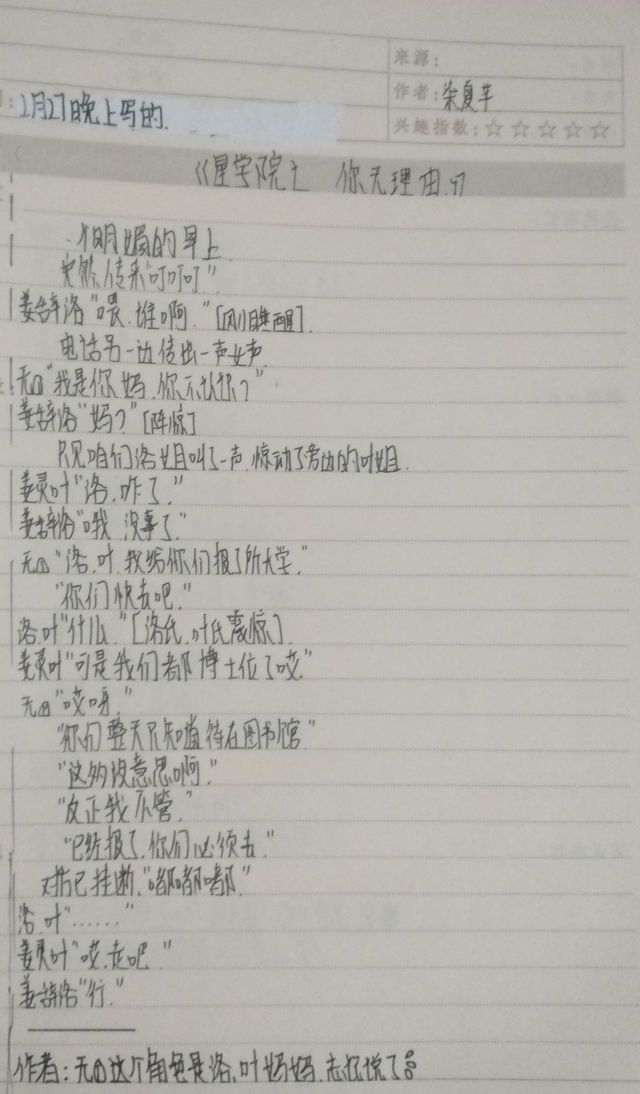 来源：
作者：柒夏芊
兴趣指数：☆☆☆☆☆
1月27晚上写的.
《星学院之 你无理由》
一个明媚的早上.
突然,传来“叮叮叮”
姜辞洛“喂.谁啊.”[刚睡醒].
电话另一边传出一声女声
无“我是你妈.你不认识？”
姜辞洛“妈？”[阵惊]
只见咱们洛姐叫了一声.惊动了旁边的叶姐.
姜灵叶“洛.咋了.”
姜辞洛“哦.没事了.”
无“洛.叶.我给你们报了所大学.”
“你们快去吧.”
洛.叶“什么.”[洛氏.叶氏震惊].
姜灵叶“可是我们都博士位了哎.”
无“哎呀.”
“你们整天只知道待在图书馆”
“这多没意思啊.”
“反正我不管.”
“已经报了.你们必须去.”
对方已挂断.“嘟嘟嘟.”
洛.叶“……”
姜灵叶“哎.走吧.”
姜辞洛“行.”
作者：无这个角色是洛.叶妈妈.忘记说了